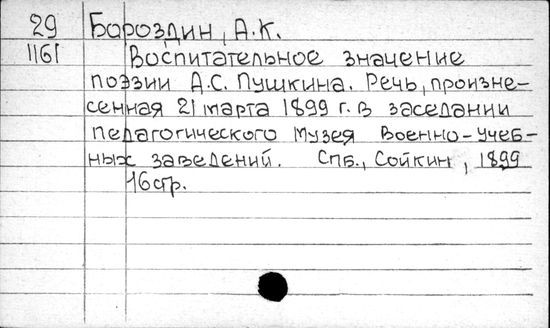 29 Бороздин, А.К.
1161 Воспитательное значение
поэзии А.С. Пушкина. Речь, произне-
сенная 21 марта 1899 г. в заседании
педагогического музея военно-учеб-
ных заведений. Спб., Сойкин, 1899
16 стр.